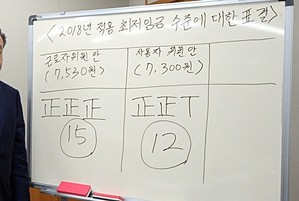 <2018년 적용 최저임금 수준에 대한 표결>
근로자위원안 사용자 위원안
(7,530원) (7,300원)
正正正 正正T
15 12